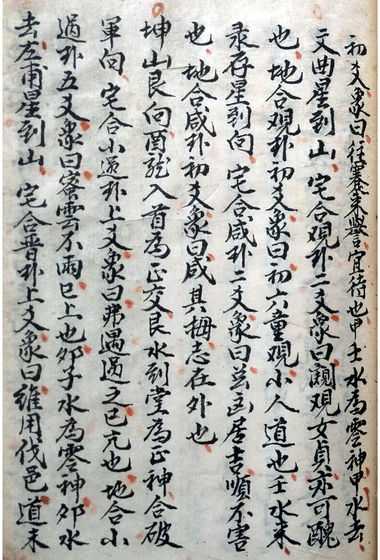 初爻象曰往蹇來譽宜待也甲壬水為零神甲水去
文曲星到山宅合觀卦二爻象曰闚觀女貞亦可醜
也地合觀卦初爻象曰初六童觀小人道也壬水來
录存星到向宅合咸卦二爻象曰虽凶居吉順不害
也地合咸卦初爻象曰咸其拇志在外也
坤山艮向酉龍入首為正交艮水到堂為正神合破
軍向宅合小過卦上爻象曰弗遇過之已亢也地合小
過卦五爻象曰密雲不雨已上也卯子水為零神卯水
去左甫星到山宅合晋卦上爻象曰維用伐邑道未